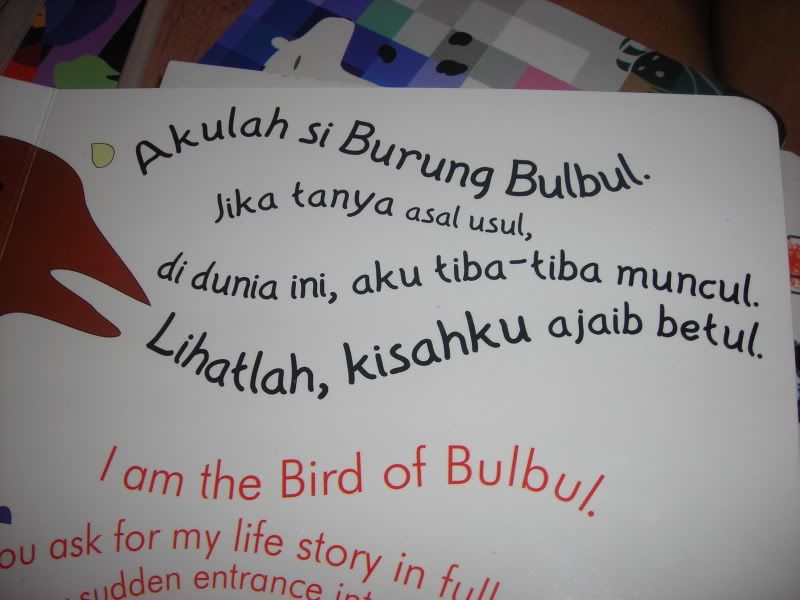 Akulah si Burung Bulbul.
Jika tanya asal usul,
di dunia ini, aku tiba-tiba muncul.
Lihatlah, kisahku ajaib betul.
I am the Bird of Bulbul.
ou ask for my life story in full
sudden entrance int